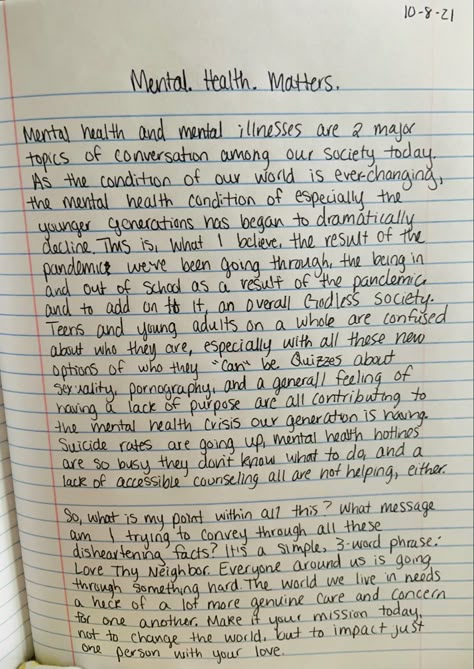 10-8-21
Mental. Health. Matters.
Mental health and mental illnesses are 2 major
topics of conversation among our society today.
As the condition of our world is ever-changing,
the mental health condition of especially the
younger generations has began to dramatically
decline. This is, what I believe, the result of the
pandemic we've been going through, the being in
and out of school as a result of the pandemic,
and to add on to it, an overall Godless society.
Teens and young adults on a whole are confused
about who they are, especially with all these new
options of who they "can" be. Quizzes about
sexuality, pornography, and a generall feeling of
having a lack of purpose are all contributing to
the mental health crisis our generation is having.
Suicide rates are going up, mental health hotlines
are so busy they don't know what to do, and a
lack of accessible counseling all are not helping, either.
So, what is my point within all this? What message
am I trying to convey through all these
disheartening facts? It's a simple, 3-word phrase:
Love Thy Neighbor. Everyone around us is going
through something hard. The world we live in needs
a heck of a lot more genuine care and concern
for one another. Make it your mission today,
not to change the world, but to impact just
one person with your love.